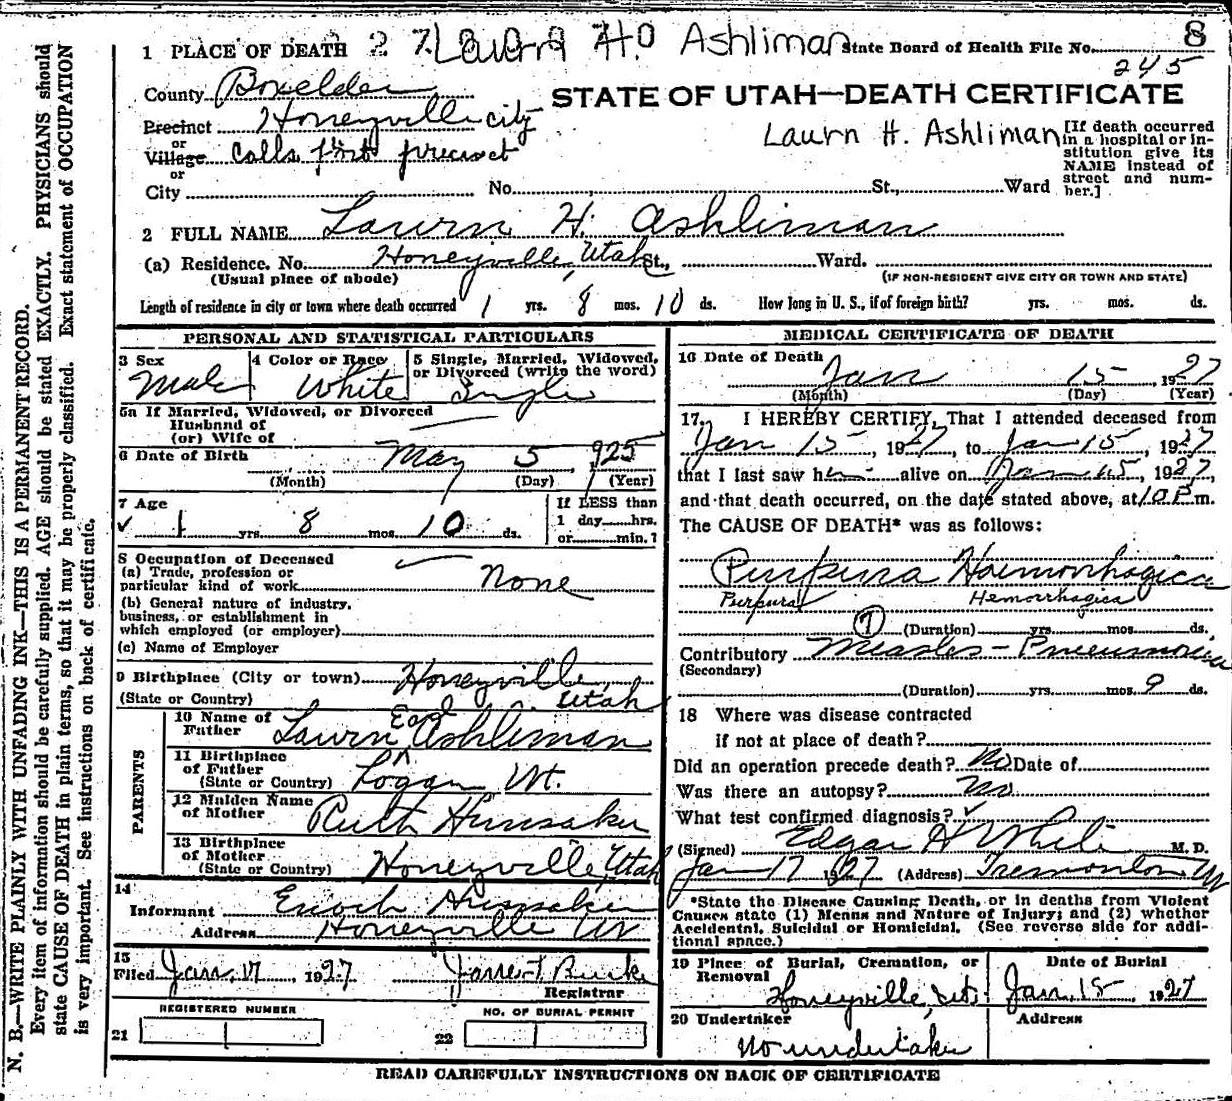 1 PLACE OF DEATH 2 7. Laurn H. Ashliman State Board of Health File No. 8
245
County Boxelder
STATE OF UTAH—DEATH CERTIFICATE
Precinct Honeyville city
or
Village Calls fort precinct
or
Laurn H. Ashliman
[If death occurred in a hospital or in-
stitution give its
NAME instead of
street and num-
ber.]
City No. St., Ward
2 FULL NAME Laurn H. Ashliman
(a) Residence. No. Honeyville, Utah St., Ward.
(Usual place of abode) (IF NON-RESIDENT GIVE CITY OR TOWN AND STATE)
Length of residence in city or town where death occurred 1 yrs. 8 mos. 10 ds. How long in U. S., if of foreign birth? yrs. mos. ds.
PERSONAL AND STATISTICAL PARTICULARS
3 Sex
Male
4 Color or Race
White
5 Single, Married, Widowed,
or Divorced (write the word)
Single
5a If Married, Widowed, or Divorced
Husband of
(or) Wife of
6 Date of Birth May 5, 1925
(Month) (Day) (Year)
7 Age
1 yrs. 8 mos. 10 ds.
If LESS than
1 day hrs.
or min.?
8 Occupation of Deceased
(a) Trade, profession or
particular kind of work None
(b) General nature of industry,
business, or establishment in
which employed (or employer)
(c) Name of Employer
9 Birthplace (City or town) Honeyville,
(State or Country) Utah
PARENTS
10 Name of
Father Laurn Earl Ashliman
11 Birthplace
of Father
(State or Country) Logan Ut.
12 Maiden Name
of Mother Ruth Hunsaker
13 Birthplace
of Mother
(State or Country) Honeyville, Utah
14
Informant Enoch Hunsaker
Address Honeyville Ut
15
Filed Jan. 17 1927 James T Burke
Registrar
REGISTERED NUMBER
21
NO. OF BURIAL PERMIT
22
MEDICAL CERTIFICATE OF DEATH
16 Date of Death
Jan 15, 1927
(Month) (Day) (Year)
17, I HEREBY CERTIFY, That I attended deceased from
Jan 15, 1927, to Jan 15, 1927
that I last saw him alive on Jan 15, 1927,
and that death occurred, on the date stated above, at 10 P m.
The CAUSE OF DEATH* was as follows:
Purpura Haemorrhagica
Purpura Hemorrhagica
7 (Duration) yrs. mos. ds.
Contributory Measles - Pneumonia
(Secondary)
(Duration) yrs. mos. 9 ds.
18 Where was disease contracted
if not at place of death?
Did an operation precede death? No Date of
Was there an autopsy? No
What test confirmed diagnosis?
(Signed) Edgar H White M. D.
Jan 17 1927 (Address) Tremonton Ut
*State the Disease Causing Death, or in deaths from Violent
Causes state (1) Means and Nature of Injury; and (2) whether
Accidental, Suicidal or Homicidal. (See reverse side for addi-
tional space.)
19 Place of Burial, Cremation, or
Removal
Honeyville, Ut.
Date of Burial
Jan. 18 1927
20 Undertaker
No undertaker
Address
READ CAREFULLY INSTRUCTIONS ON BACK OF CERTIFICATE
N. B.—WRITE PLAINLY WITH UNFADING INK—THIS IS A PERMANENT RECORD.
Every item of information should be carefully supplied. AGE should be stated EXACTLY. PHYSICIANS should
state CAUSE OF DEATH in plain terms, so that it may be properly classified. Exact statement of OCCUPATION
is very important. See instructions on back of certificate.